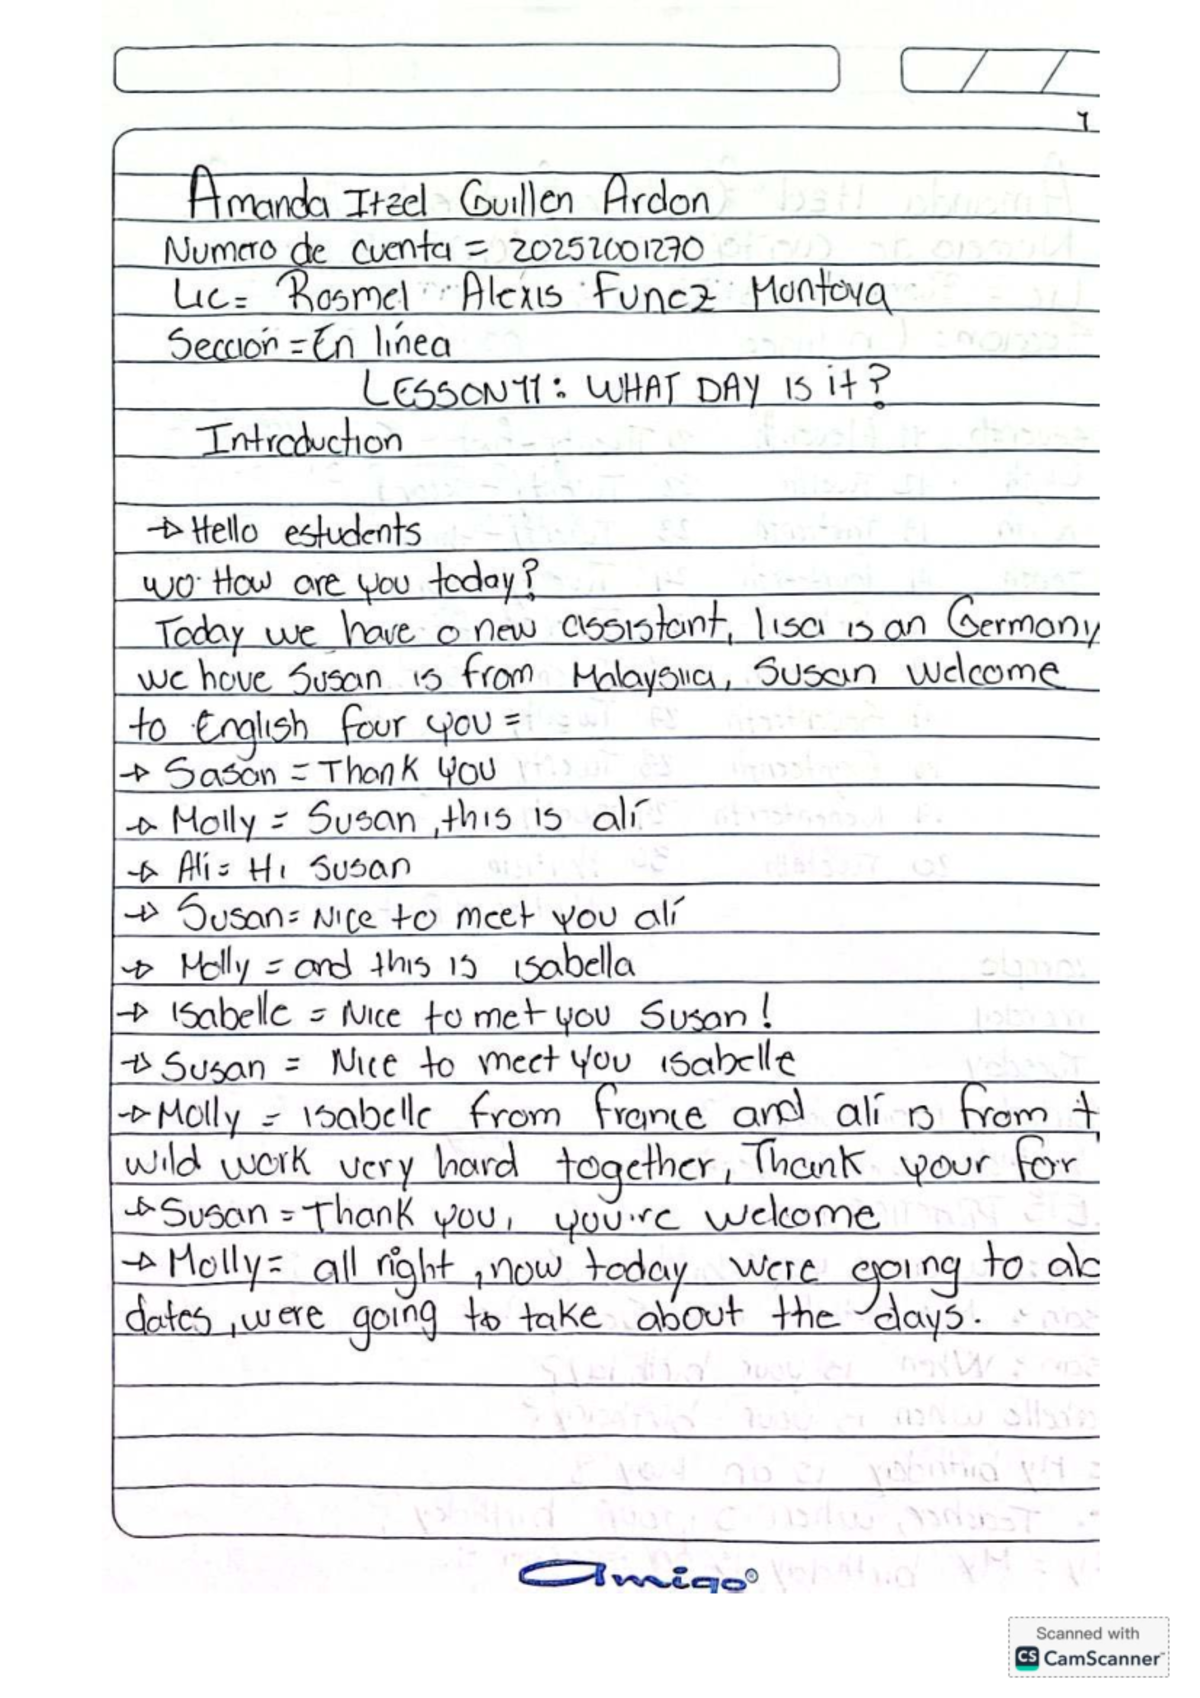 1
Amanda Itzel Guillen Ardon
Numero de cuenta = 20252001270
Lic = Rosmel Alexis Funez Montoya
Sección = En línea
LESSON 11: WHAT DAY IS it?
Introduction
→ Hello estudents
wo. How are you today?
Today we have a new assistant, lisa is an Germony
we have Susan is from Malaysiia, Susan welcome
to English four you =
→ Sasan = Thank you
→ Molly = Susan, this is alí
→ Ali = Hi Susan
→ Susan = Nice to meet you alí
→ Molly = and this is isabella
→ Isabelle = Nice to met you Susan!
→ Susan = Nice to meet you isabelle
→ Molly = isabelle from france and alí is from t
wild work very hard together, Thank your for
→ Susan = Thank you, you're welcome
→ Molly = all right, now today were going to ab
dates, were going to take about the days.
Amigo®
Scanned with
CS CamScanner